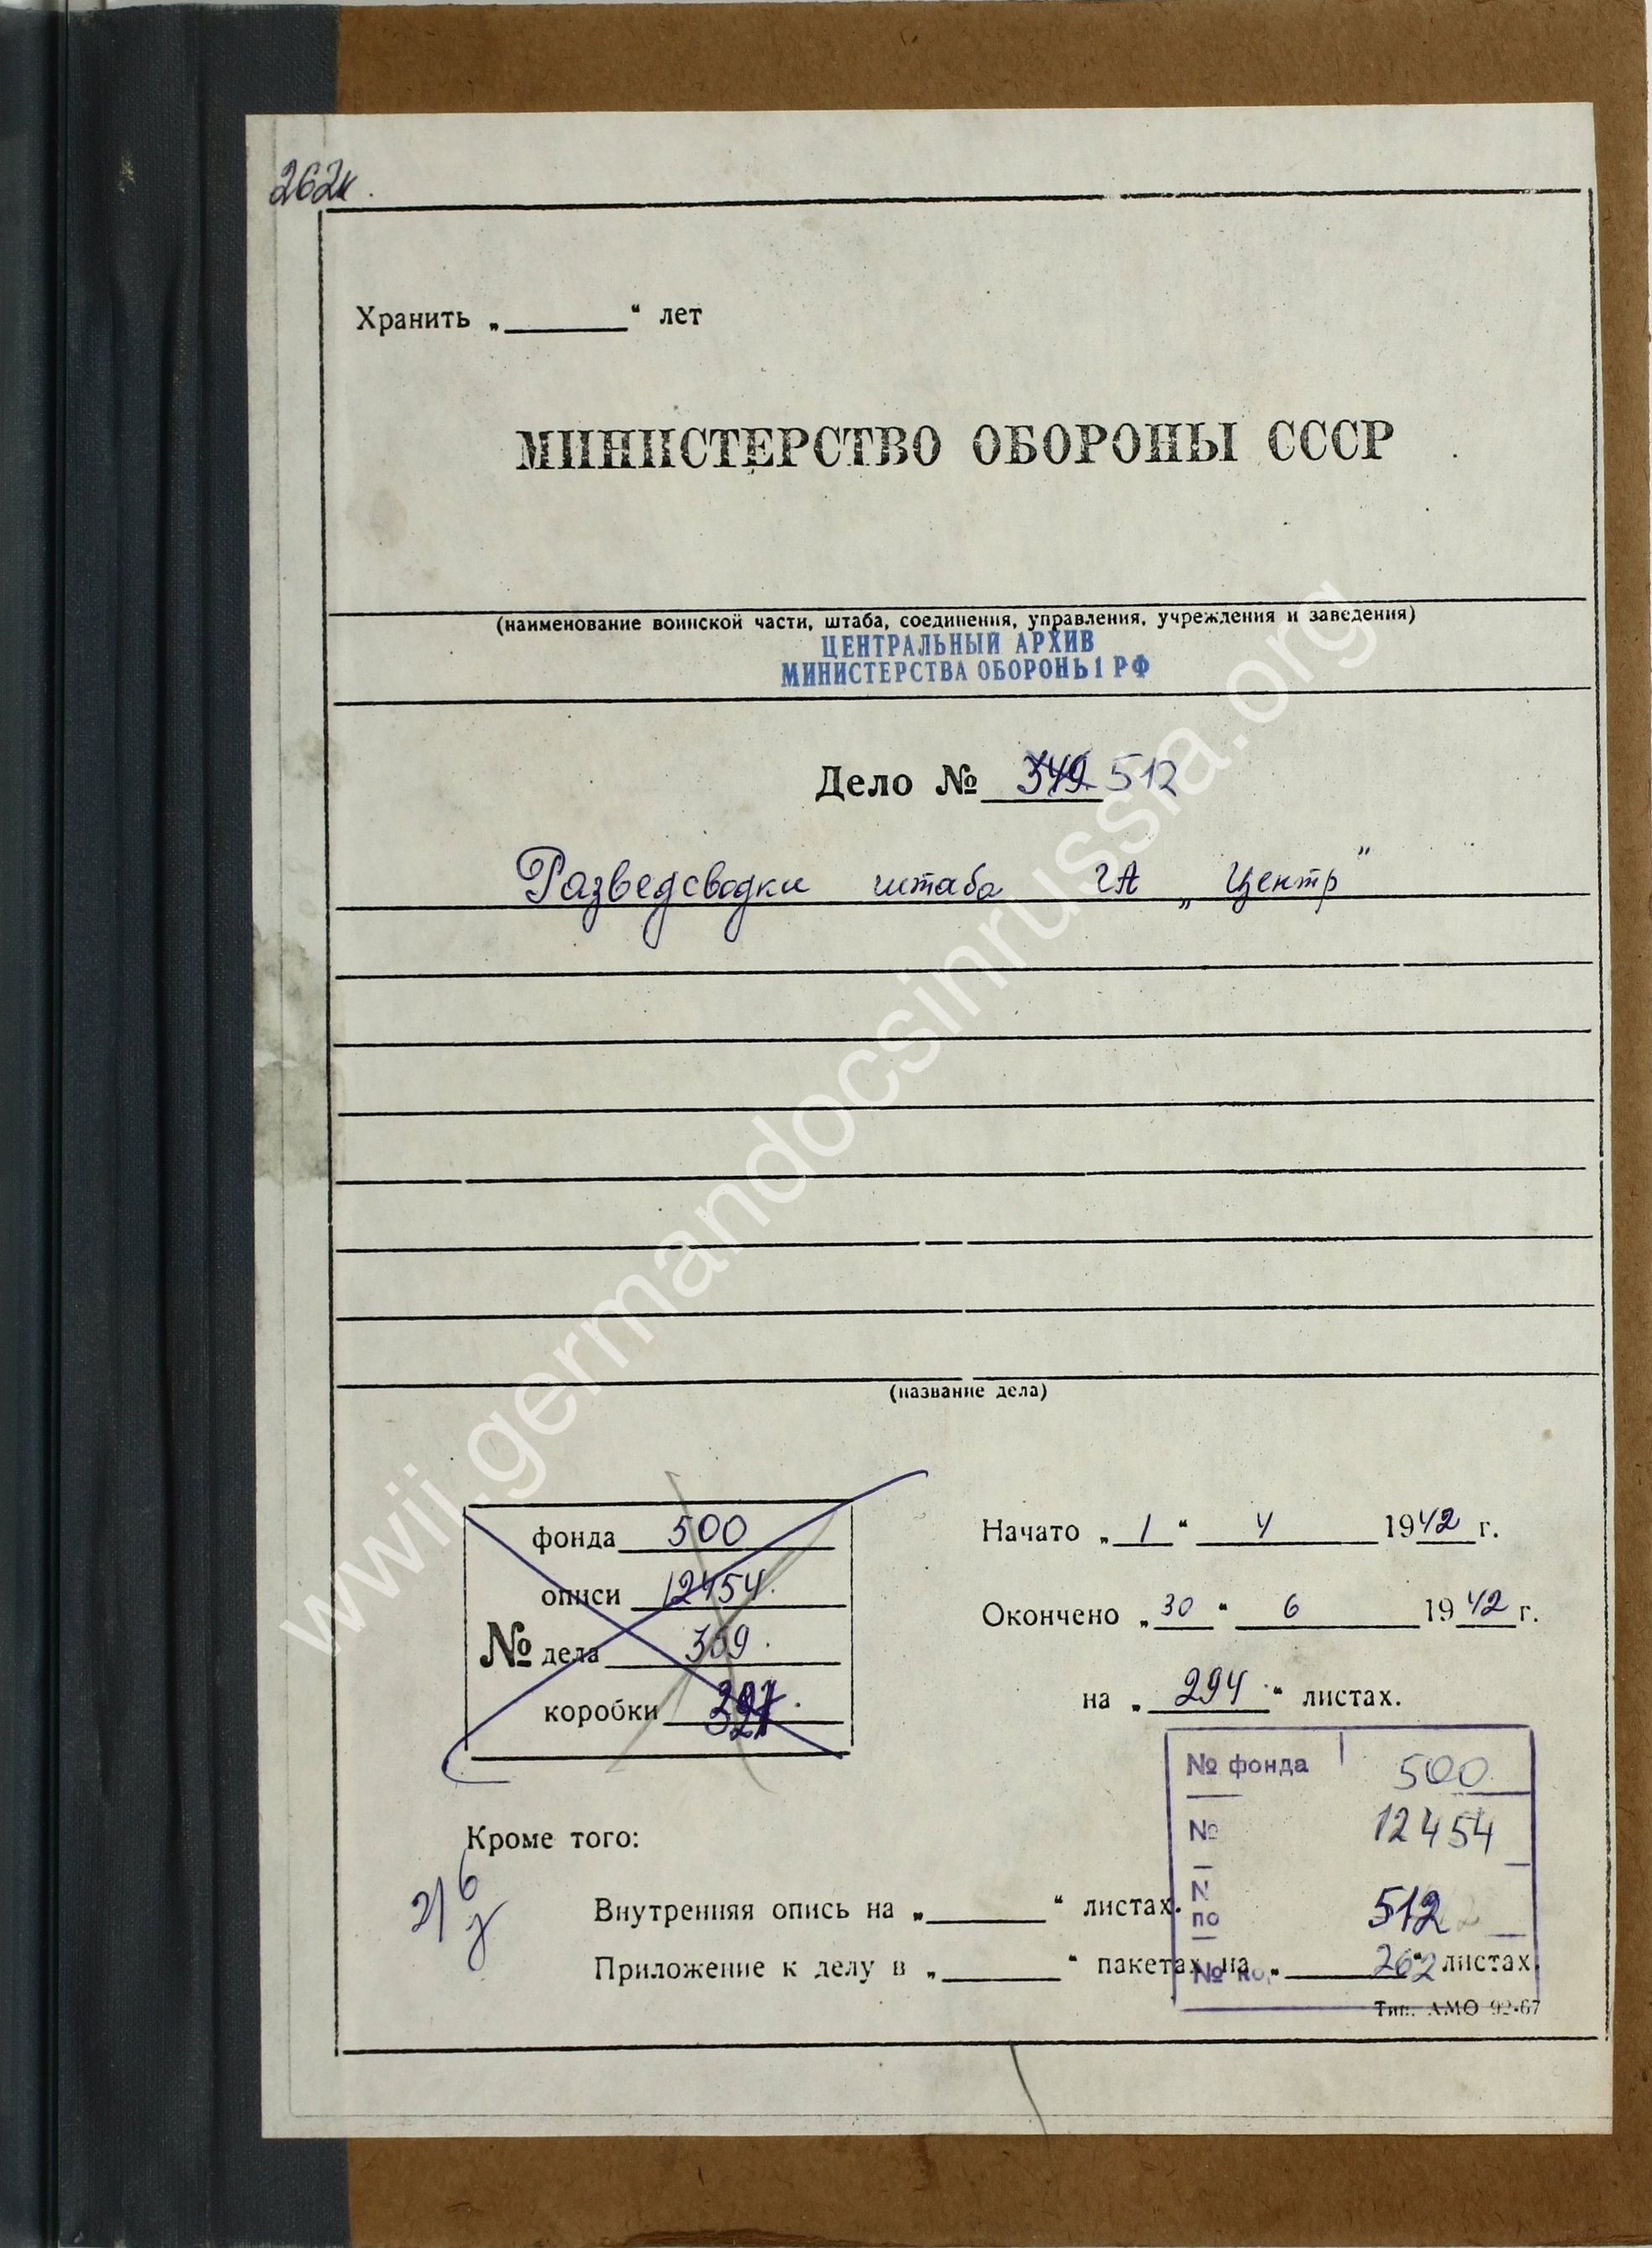 262к.
Хранить „ “ лет
МИНИСТЕРСТВО ОБОРОНЫ СССР
(наименование воинской части, штаба, соединения, управления, учреждения и заведения)
ЦЕНТРАЛЬНЫЙ АРХИВ
МИНИСТЕРСТВА ОБОРОНЫ РФ
Дело № 349 512
Разведсводки штаба ГА „Центр”
(название дела)
фонда 500
описи 12454.
№ дела 369.
коробки
Начато „1“ 4 1942 г.
Окончено „30“ 6 1942 г.
на „294“ листах.
№ фонда 500
№ 12454
N
по 512
№ ко 262
Кроме того:
2/6
Внутренняя опись на „ “ листах.
Приложение к делу в „ “ пакетах на „ “ листах.
Тип. АМО 92-67
wwii.germandocsinrussia.org